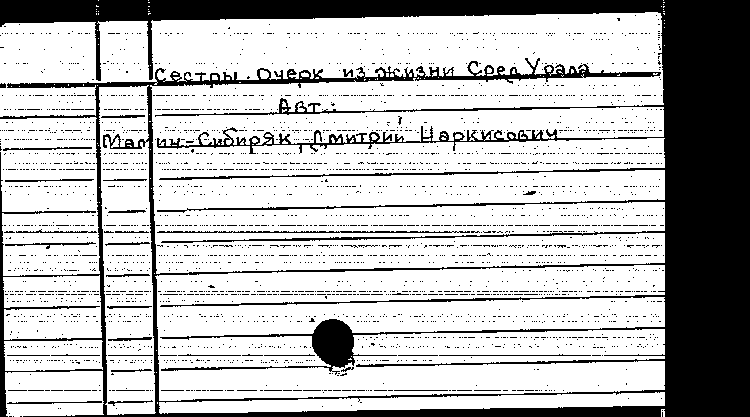 Сестры. Очерк из жизни Сред Урала.
Авт.:
Мамин-Сибиряк, Дмитрий Наркисович